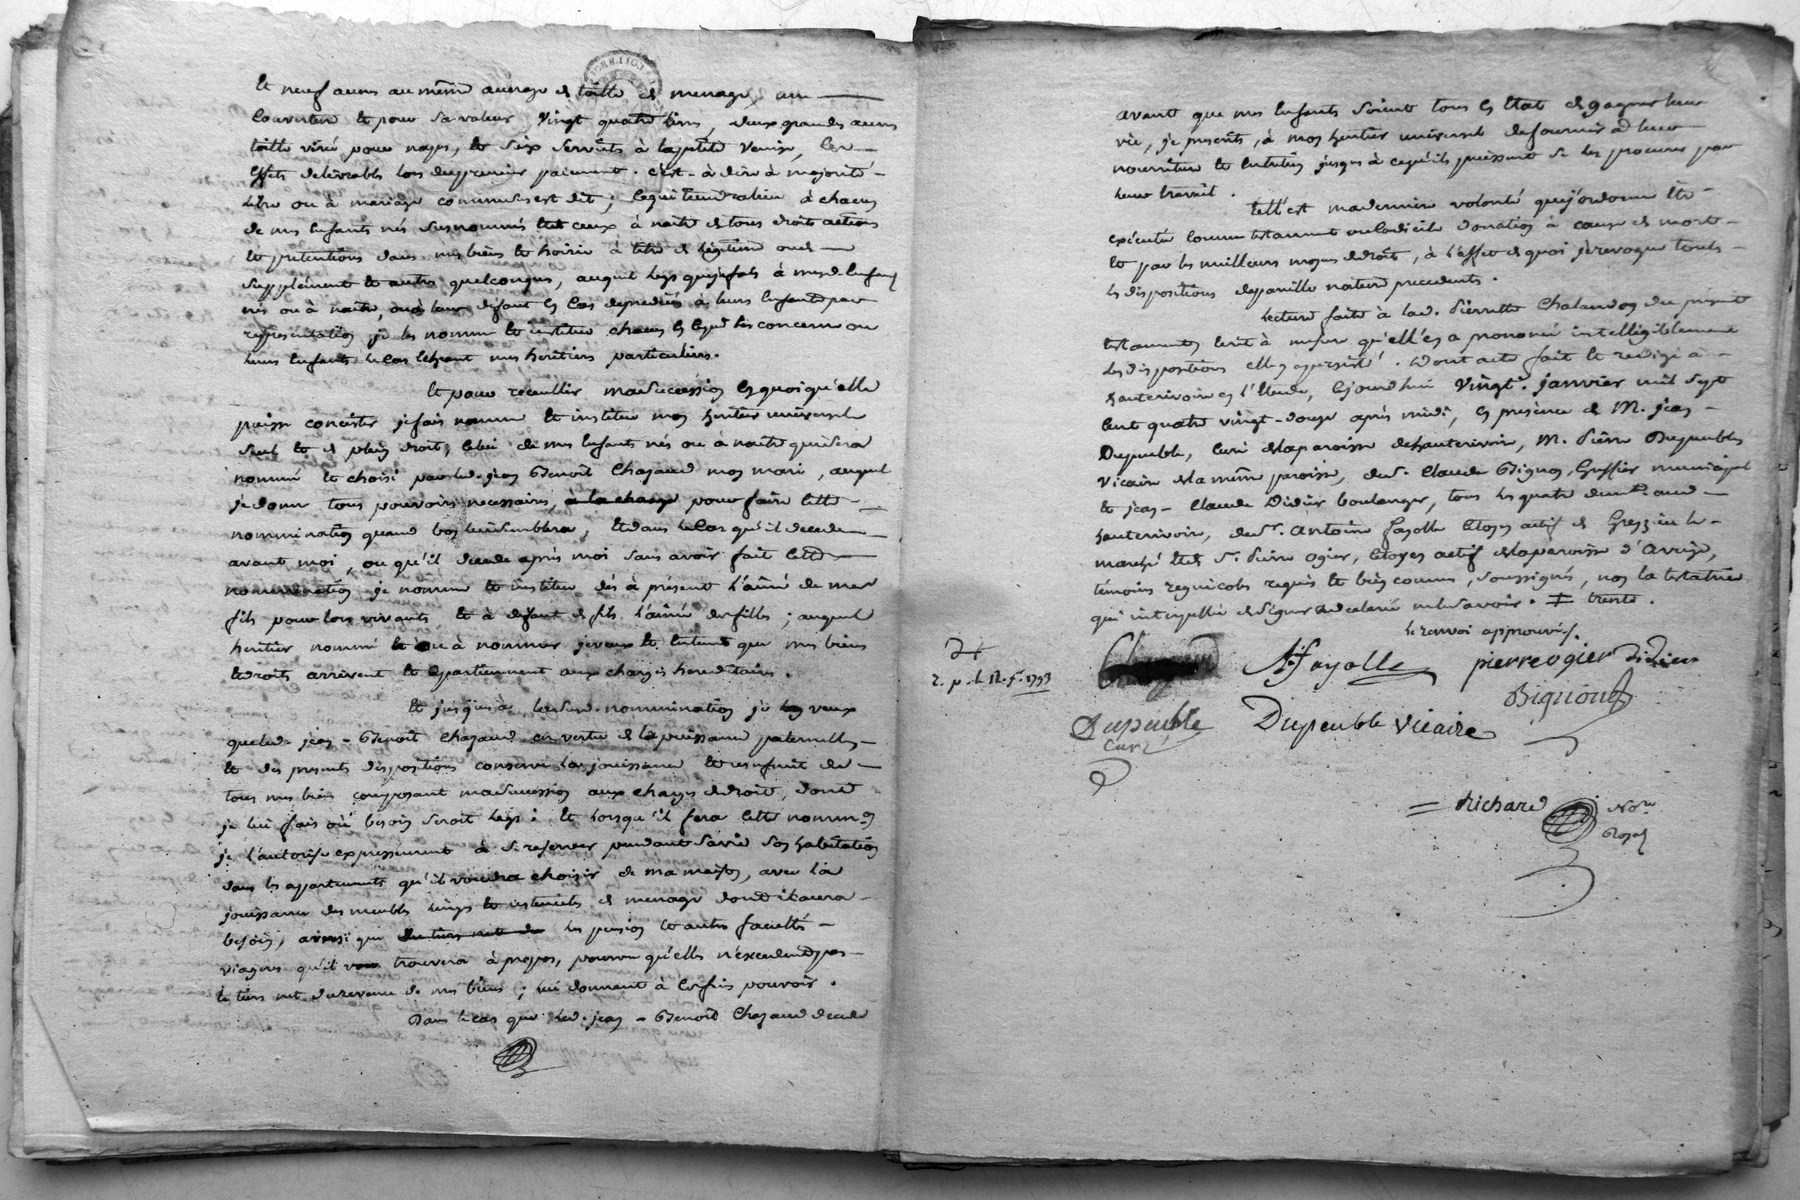 et neuf aunes au même aunage de toille de menage, une
couverture et pour sa valeur vingt quatre livres, deux grandes aunes
toille rivé pour napes, et six serviets à la petite Venise, les
effets delivrables lors du premier paiement. c'est-à-dire à majorité
libre ou à mariage comme dessus est dit; ce qui tiendra lieu à chacun
de mes enfants nés susnommés et ceux à naitre de tous droits actions
et pretentions dans mes biens et hoirie à titre de légitime ou de
supplément et autres quelconques, auquel legs que je fais à mesd. enfans
nés ou à naitre, ou à leur défaut en cas de predécès à leurs enfants par
representation je les nomme et institue chacun en ce qui les concerne ou
leurs enfants le cas échéant mes heritiers particuliers.
et pour recueillir ma succession en quoi qu'elle
puisse consister je fais nomme et institue mon heritier universel
seul et de plein droit, celui de mes enfants nés ou à naitre qui sera
nommé et choisi par led. jean Benoit Chazaud mon mari, auquel
je donne tous pouvoirs necessaires, à la charge pour faire cette
nomination quand bon lui semblera; et dans le cas qu'il decede
avant moi, ou qu'il decede après moi sans avoir fait cette
nomination je nomme et institue dès à présent l'ainé de mes
fils pour lors vivants, et à defaut de fils l'ainée des filles; auquel
heritier nommé et ou à nommer je veux et entends que mes biens
et droits arrivent et appartiennent aux charges hereditaires.
Et jusqu'à lad. nomination je veux
que led. jean-Benoit Chazaud en vertu de la puissance paternelle
et des presents dispositions conserve la jouissance et usufruit de
tous mes biens composant ma succession aux charges de droit, dont
je lui fais où besoin seroit legs: et lorsqu'il fera cette nomm.on
je l'autorise expressement à se reserver pendant sa vie son habitation
dans les appartements qu'il voudra choisir de ma maison, avec la
jouissance des meubles linges et ustenciles de menage dont il aura
besoin, ainsi que du tiers net de les pension et autres facultés
viageres qu'il trouvera à propos, pourvu qu'elles n'excedent pas
le tiers net du revenu de mes biens; lui donnant à ces fins pouvoir.
Dans le cas que led. jean-Benoit Chazaud decede
avant que mes enfants soient tous en état de gagner leur
vie, je prescrits, à mon heritier universel de fournir à leur
nourriture et entretien jusques à ce qu'ils puissent se les procurer par
leur travail.
tell'est ma derniere volonté que j'ordonne être
exécutée comme testament ou codicile donation à cause de mort
et par les meilleurs moyens de droits, à l'effet de quoi je revoque toutes
les dispositions de pareille nature precedents.
Lecture faite à lad. Pierrette Chalandon du présent
testament écrit à mesure qu'elle en a prononcé intelligiblement
les dispositions elle y a persisté. Dont acte fait et redigé à
hauterivoire en l'étude, ce jourd'hui vingt. janvier mil sept
cent quatre vingt-douze après midi, en presence de M. jean
Dupeuble, curé de la paroisse de hauterivoire, M. Pierre Dupeuble
vicaire de la même paroisse, du s.r Claude Bignon, Greffier municipal
et jean-Claude Didier boulanger, tous les quatre dem.ts aud.
hauterivoire, du s.r Antoine fayolle citoyen actif de Grezieu le
marché et s.r Pierre ogier, citoyen actif de la paroisse d'Aveize,
témoins regnicoles requis et bien connus, soussignés, non la testatrice
qui interpellée de signer a declaré ne le savoir. ‡ trente.
le renvoi approuvé.
r. p. l. 12. f.er 1793
A fayolle
pierre ogier
Didier
Bignon
Dupeuble
curé
Dupeuble Vicaire
= Richard
No.re
Royal